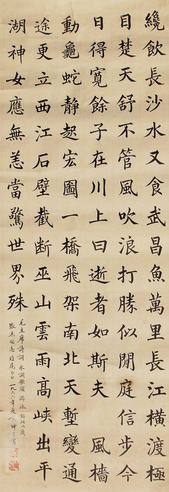 纔飲長沙水又食武昌魚萬里長江橫渡極
目楚天舒不管風吹浪打勝似閒庭信步今
日得寬餘子在川上曰逝者如斯夫 風檣
動龜蛇靜起宏圖一橋飛架南北天塹變通
途更立西江石壁截断巫山雲雨高峽出平
湖神女應無恙當驚世界殊
毛主席詩詞 水調歌頭 游泳